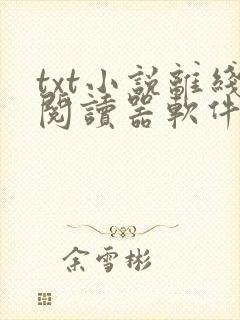 txt小説離綫
閱讀器軟件
余雪彬